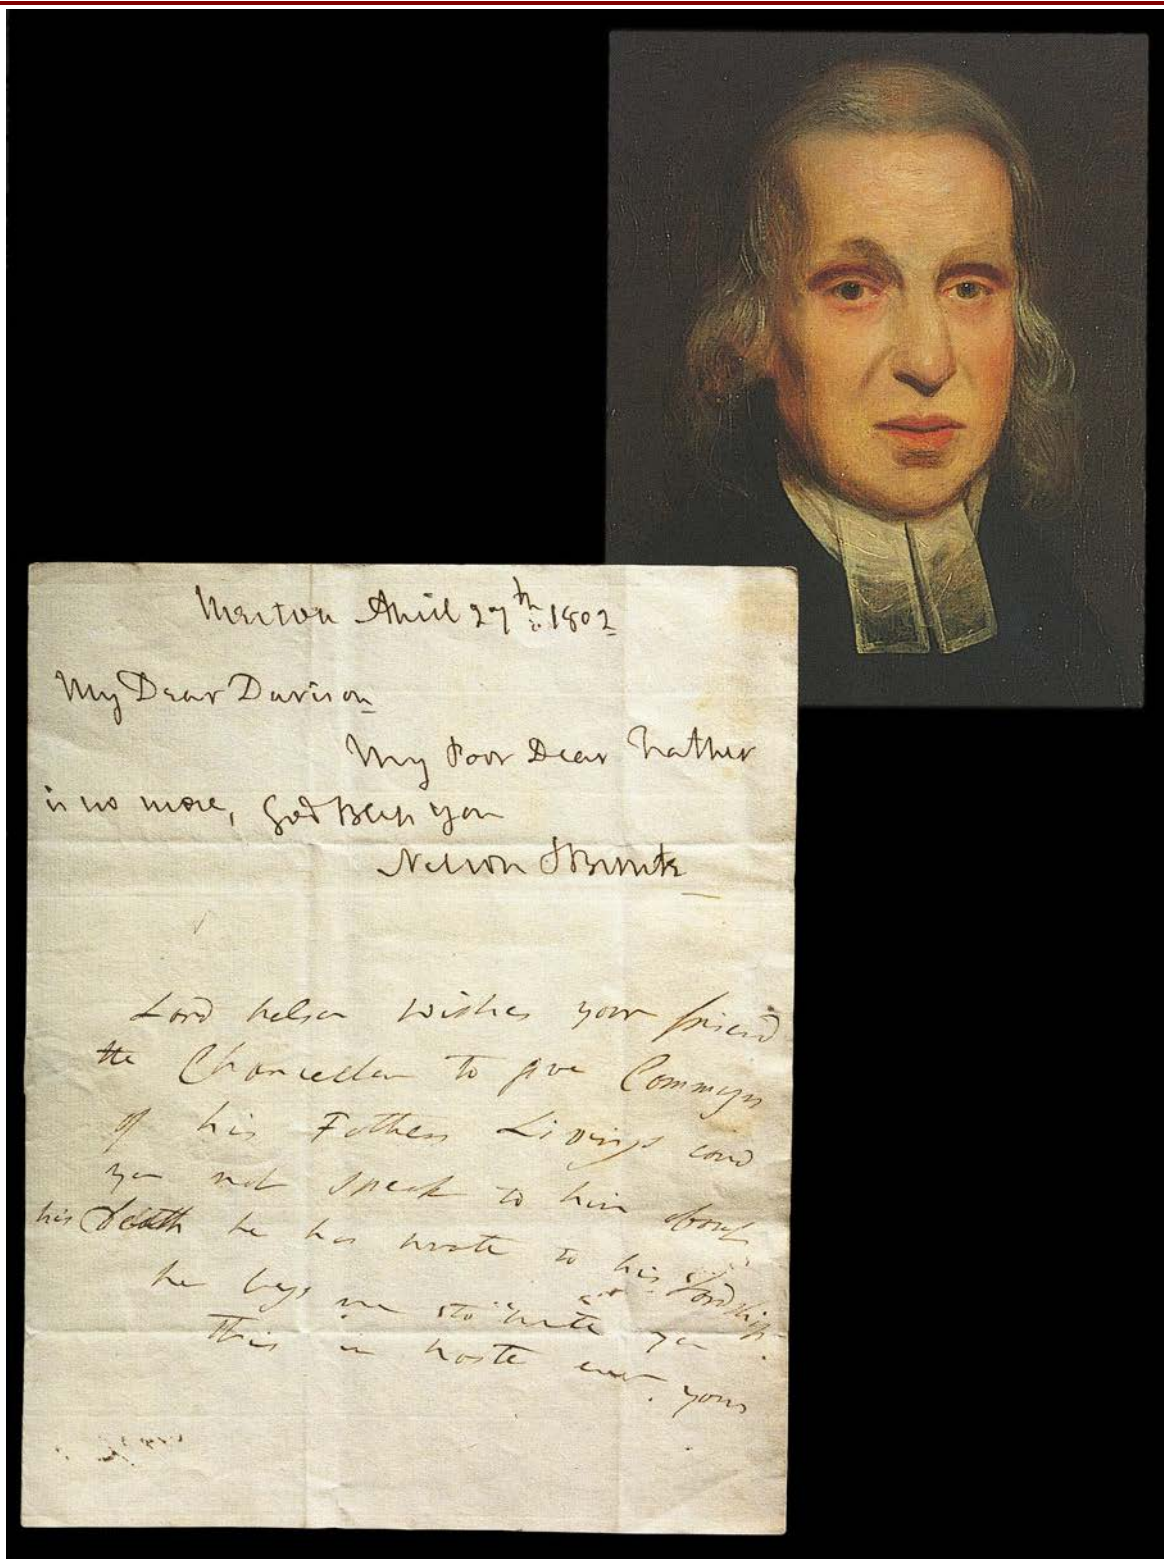 Merton April 27th: 1802
My Dear Davison
My Poor Dear Father
is no more, God Bless you
Nelson & Bronte
Lord Nelson wishes your friend
the Chancellor to give Commyns
of his Fathers Livings
you not speak to him about
his death he has wrote to his Lordship.
he begs me to write you
this in haste ever yours